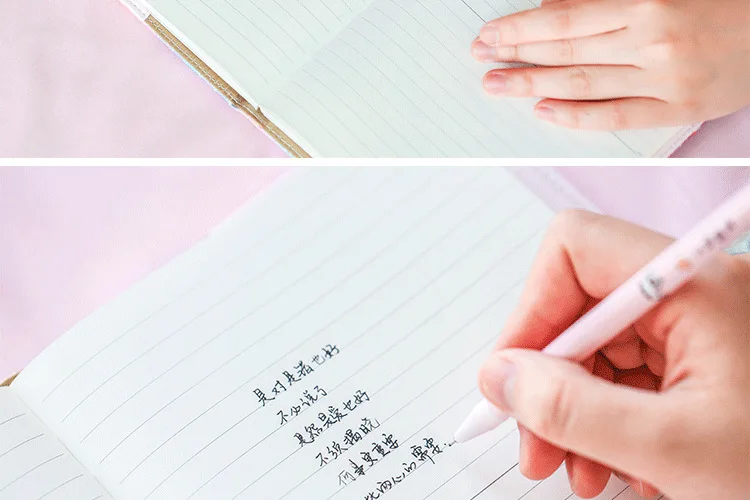 是对是错也好
不必说了
是怨是爱也好
不须揭晓
何事更重要
比两心的需要